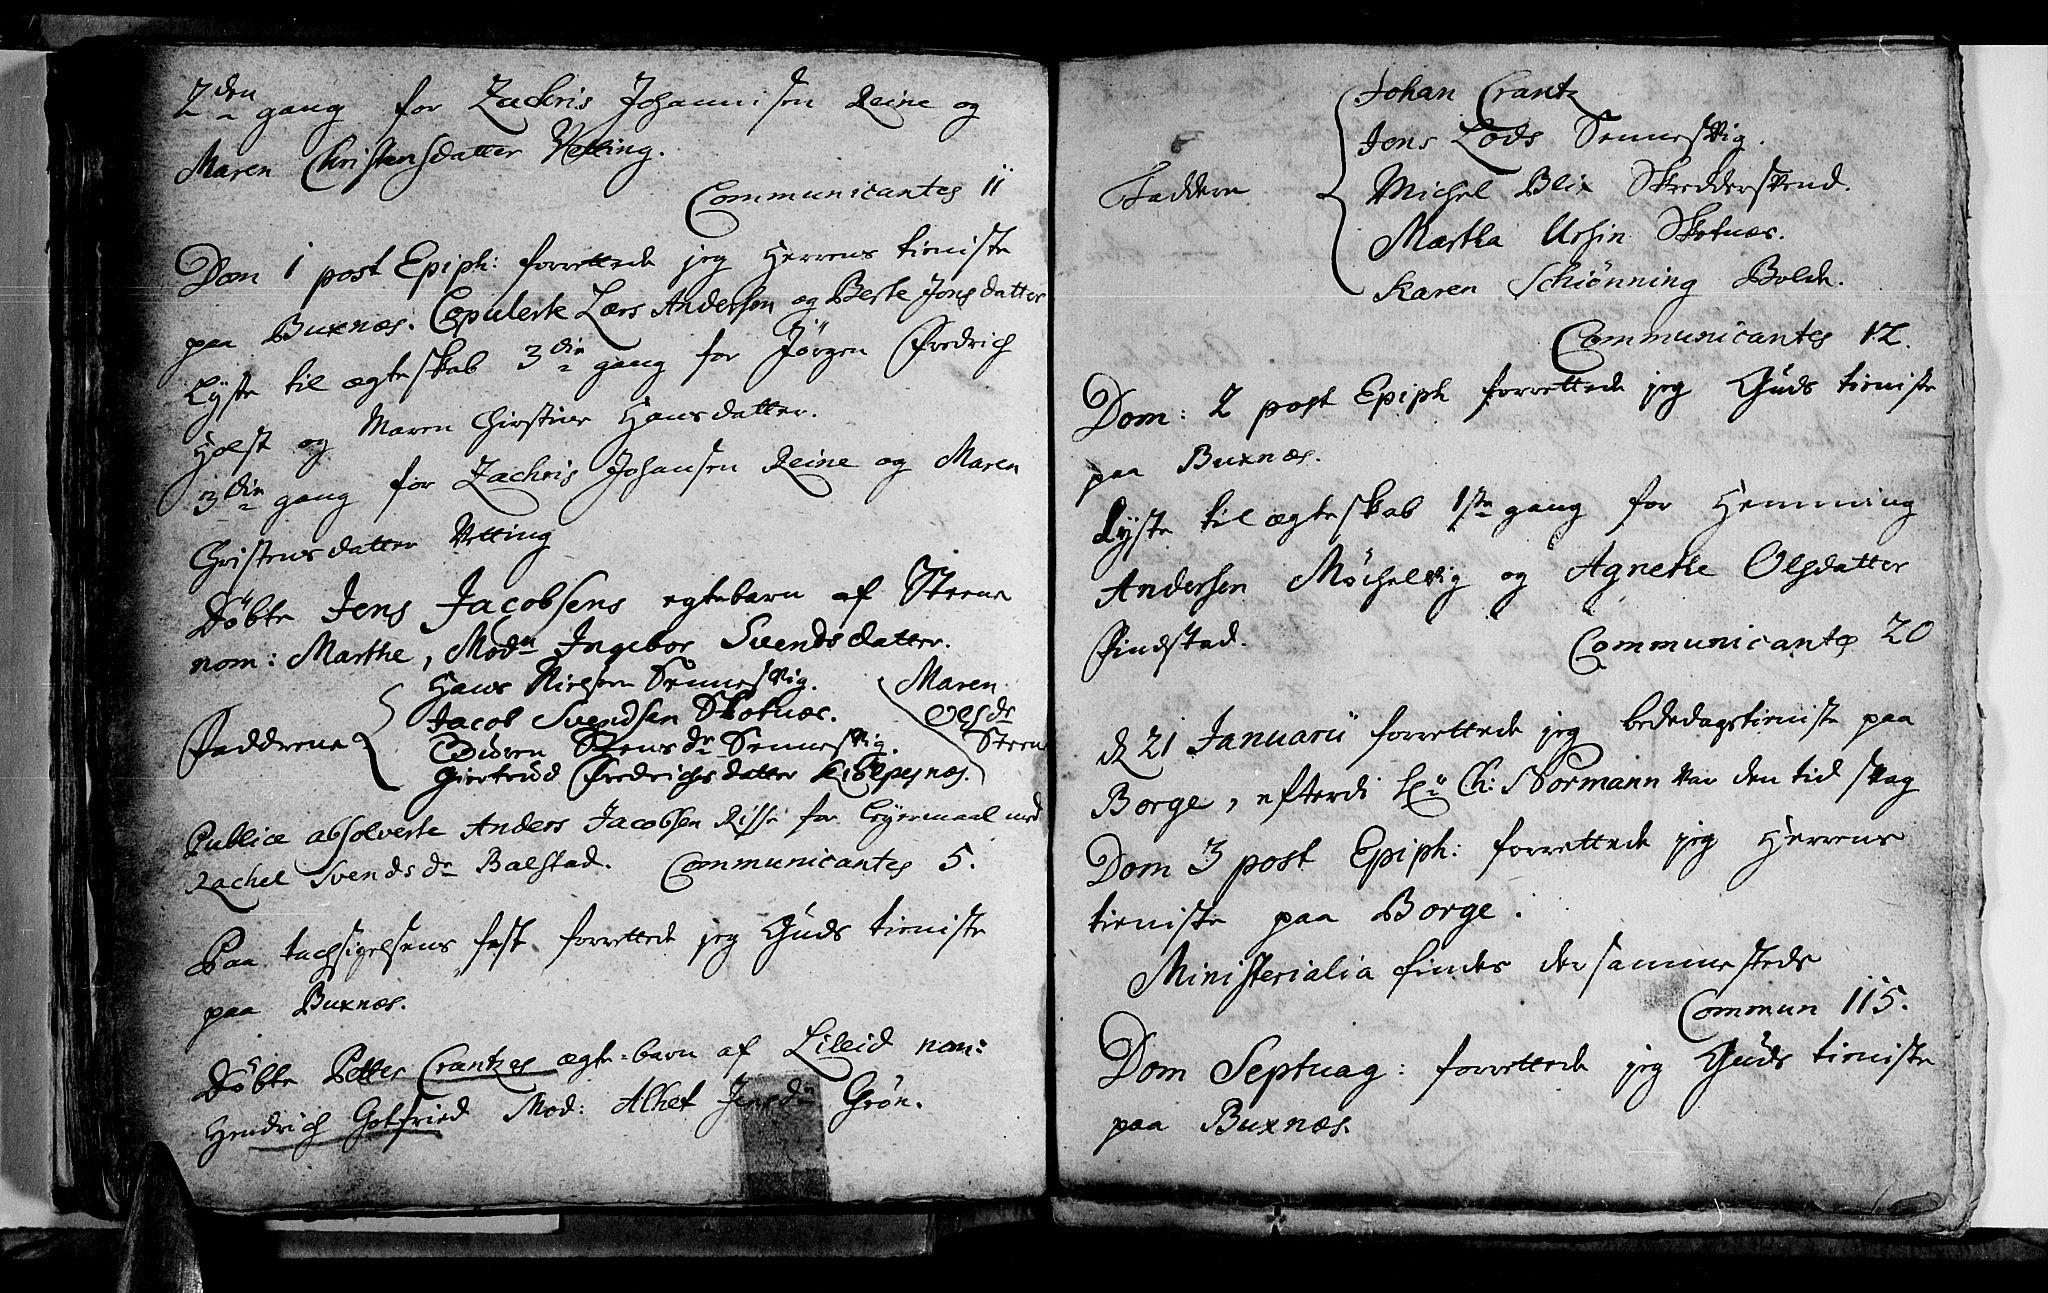 2den gang for Zachris Johannisen Reine og
Maren Christensdatter Vetting.
Communicantes 11
Dom 1 post Epiph: forrettede jeg Herrens tieniste
paa Buxnæs. Copulerte Lars Andersen og Berte Jonsdatter
Lyste til ægteskab 3die gang for Jörgen Fredrich
Holst og Maren Chirstine Hansdatter.
3die gang for Zachris Johansen Reine og Maren
Christensdatter Vetting
Döbte Jens Jacobsens egtebarn af Steene
nom: Marthe, Modn Ingebor Svendsdatter.
Fadderne
Hans Nielsen Sennesvig.
Jacob Svendsen Skotnæs.
Sennesvig.
Giertrud Fredrichsdatter
Maren
Olsdr
Steene
Publice absolverte Anders Jacobsen Risse for Leyermaal med
Rachel Svendsdr Balstad. Communicantes 5.
Paa tachsigelsens fest forrettede jeg Guds tieniste
paa Buxnæs.
Döbte Petter Crantzes ægte-barn af Lileid nom:
Hendrich Gotfried Mod: Alhet Jensdr Grön.
Faddere
Johan Crantz
Jens Lods Sennesvig.
Michel Blix
Martha Ursin Skotnæs.
Karen Schiönning Bolde.
Communicantes 12.
Dom: 2 post Epiph forrettede jeg Guds tieniste
paa Buxnæs.
Lyste til ægteskab 1ste gang for Hemming
Andersen Möchelvig og Agnethe Olsdatter
Findstad. Communicantes 20
d 21 Januarii forrettede jeg bededagstieniste paa
Borge, efterdi Hr Ch: Normann var den tid svag
Dom 3 post Epiph: forrettede jeg Herrens
tieniste paa Borge.
Ministerialia findes der sammesteds
Commun 115.
Dom Septuag: forrettede jeg Guds tieniste
paa Buxnæs.